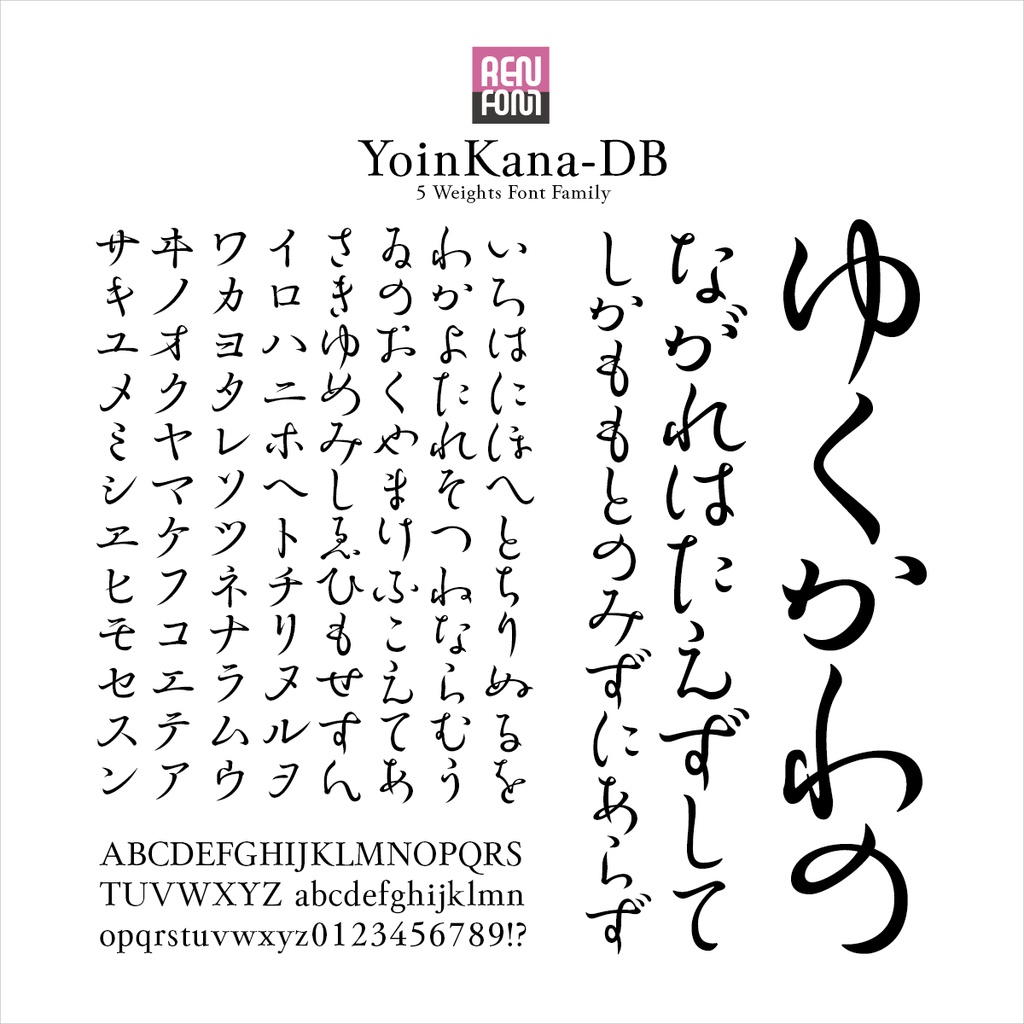 REN
FONT
YoinKana-DB
5 Weights Font Family
ゆくかわの
ながれはたえずして
しかももとのみずにあらず
いろはにほへとちりぬるを
わかよたれそつねならむう
ゐのおくやまけふこえてあ
さきゆめみしゑひもせすん
イロハニホヘトチリヌルヲ
ワカヨタレソツネナラムウ
ヰノオクヤマケフコエテア
サキユメミシヱヒモセスン
ABCDEFGHIJKLMNOPQRS
TUVWXYZ abcdefghijklmn
opqrstuvwxyz0123456789!?